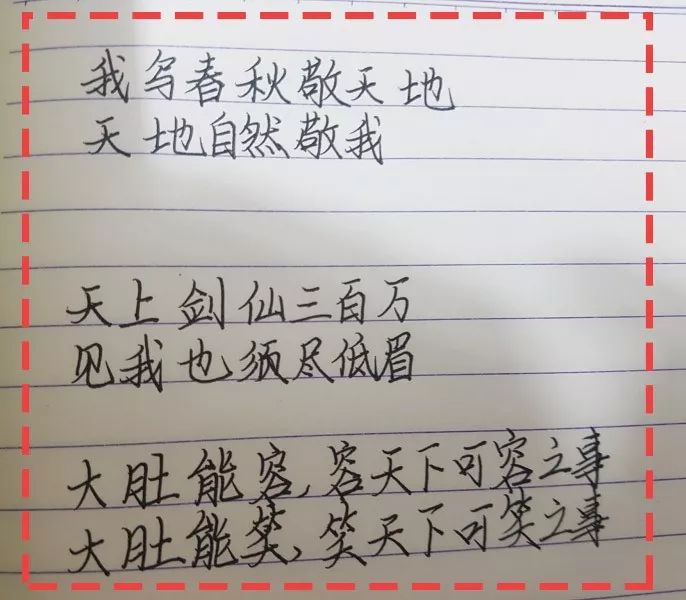 我写春秋敬天地
天地自然敬我
天上剑仙三百万
见我也须尽低眉
大肚能容,容天下可容之事
大肚能笑,笑天下可笑之事